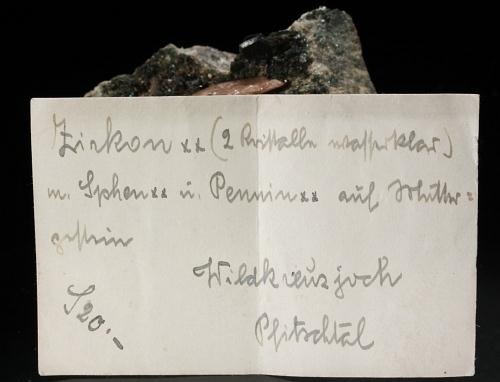 Zirkon xx (2 Kristalle wasserklar)
m. Sphen xx u. Pennin xx auf Mutter=
gestein
Wildkreuzjoch
Pfitschtal
S 20.-